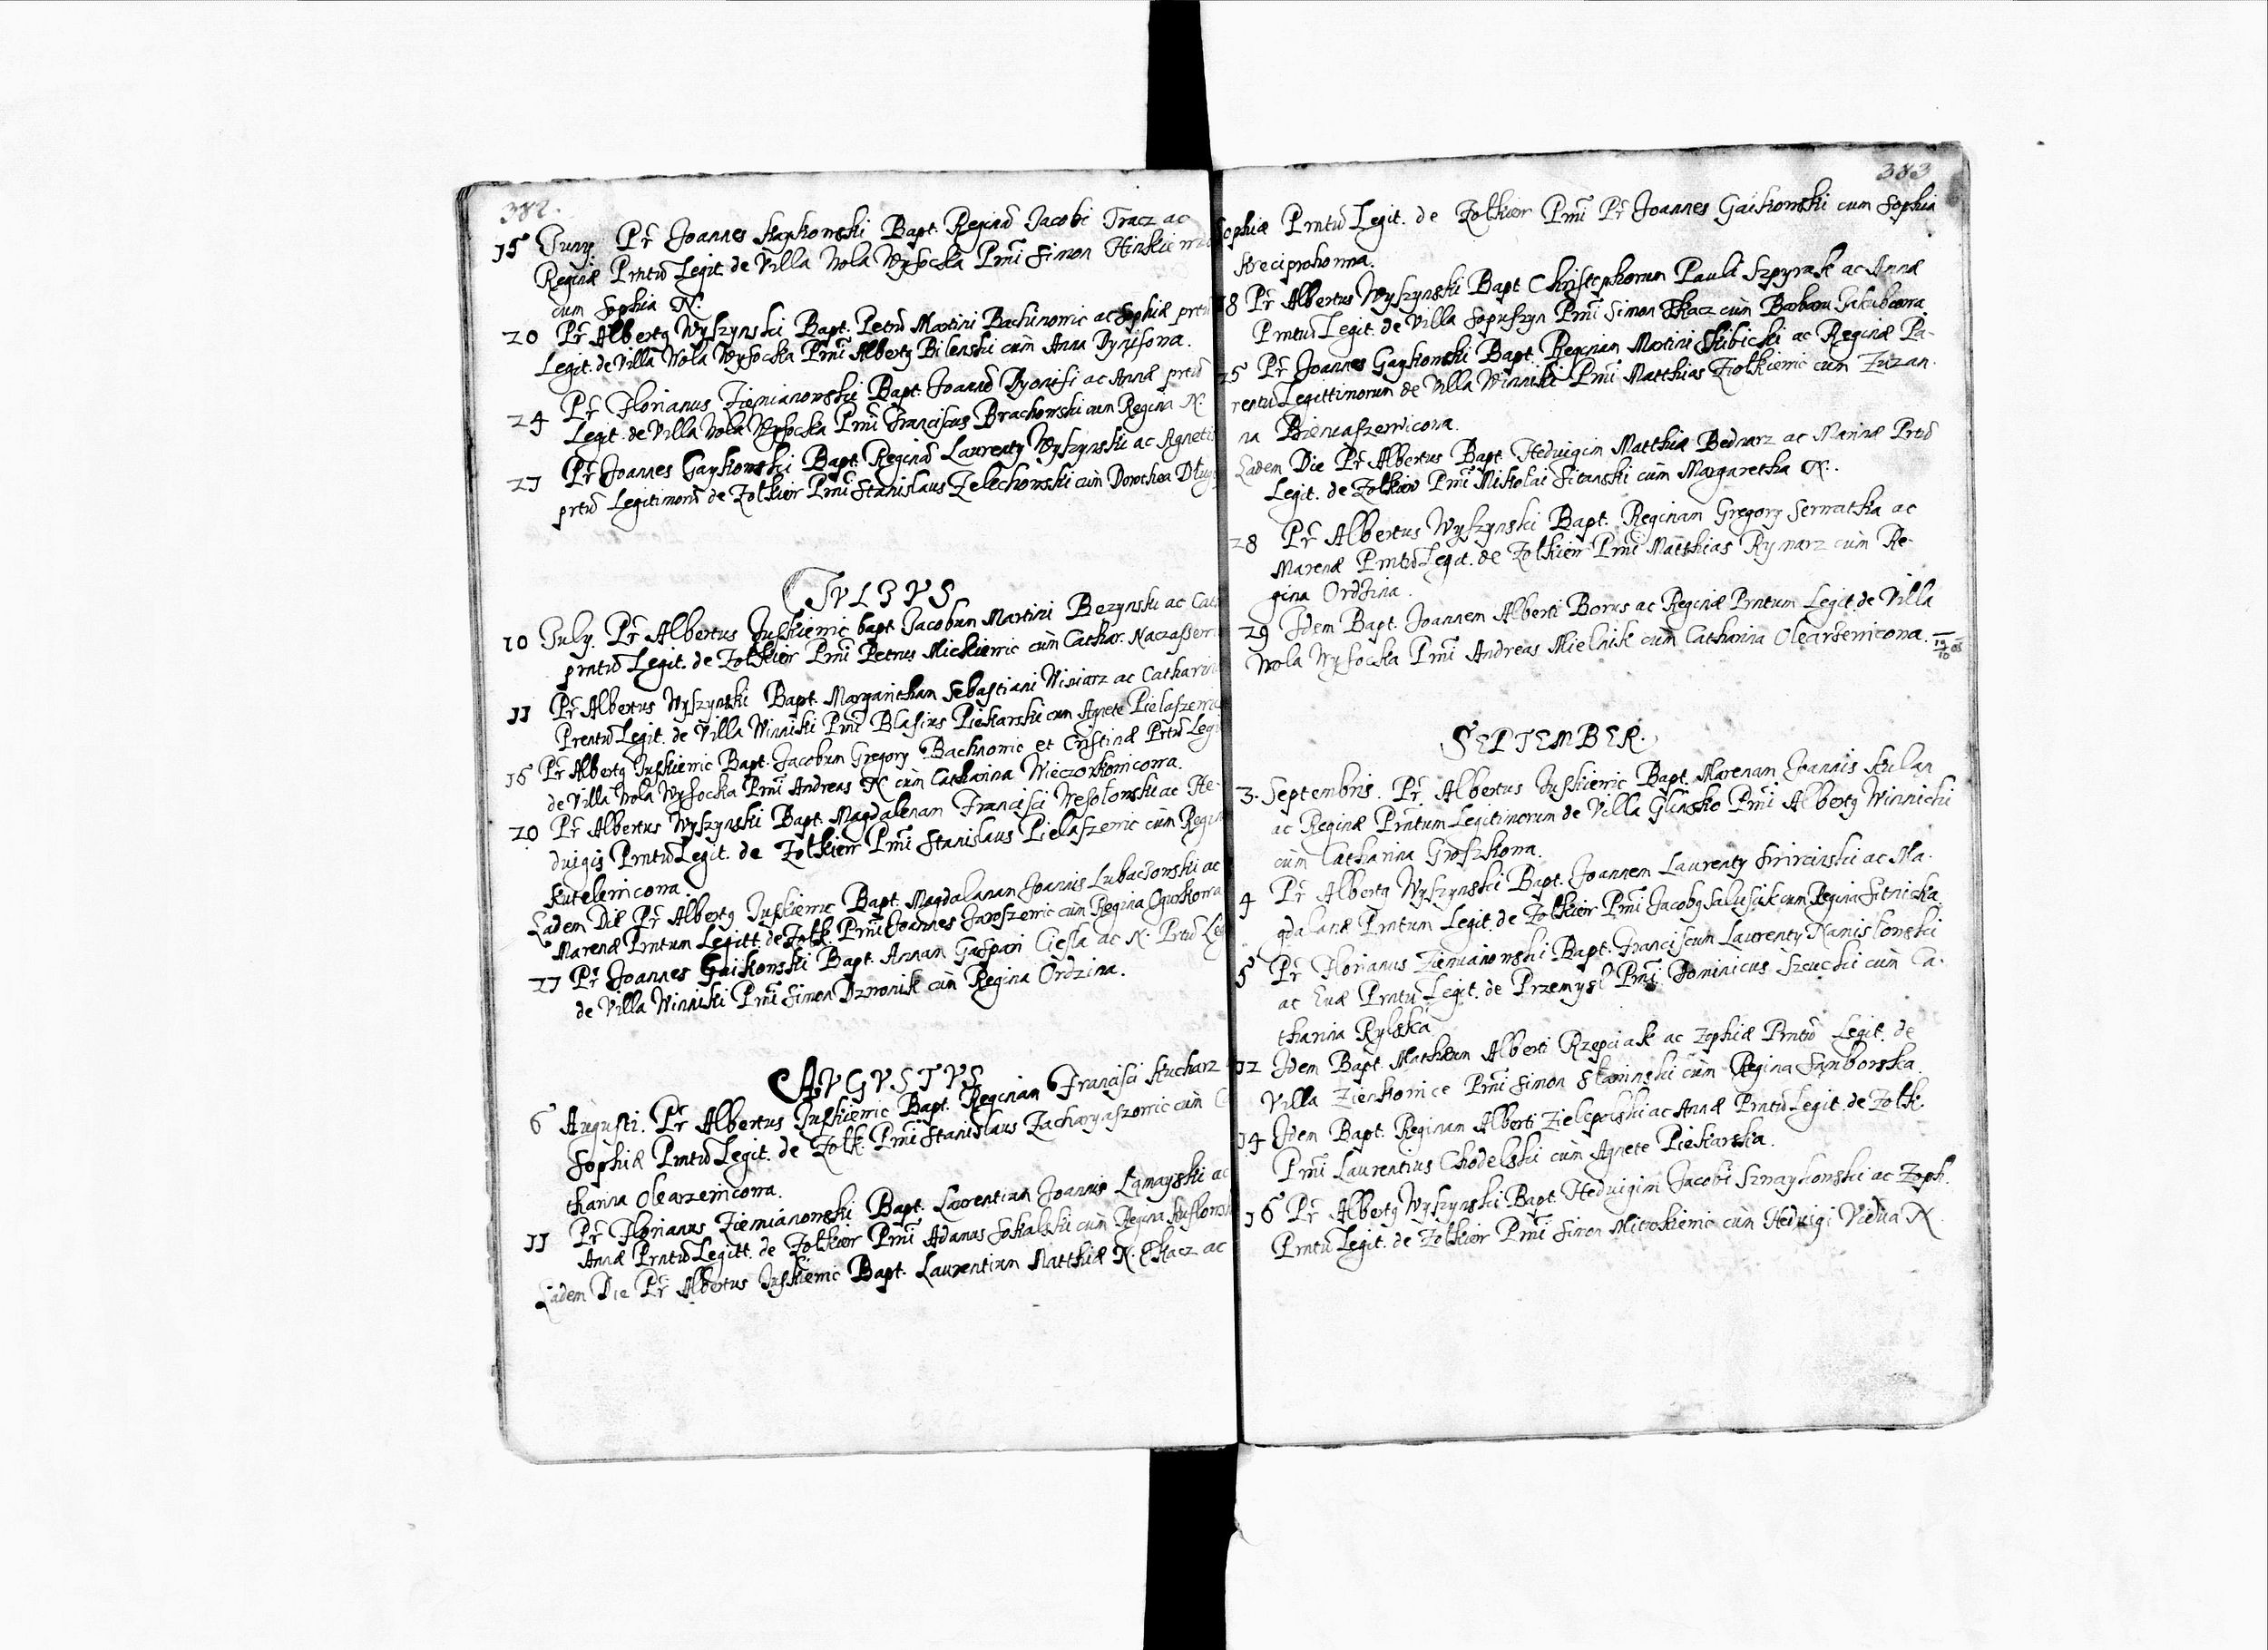 382.
15 Juny. Pr Joannes Haykowski Bapt. Reginā Jacobi Tracz ac
Reginæ Prntū Legit. de Villa Wola Wysocka Pmi Simon
cum Sophia N.
20 Pr Albertg Wyszynski Bapt. Petrū Martini Bachnowic ac Sophiæ prtū
Legit. de Villa Wola Wysocka Pmi Albertg Bilenski cum Anna Dynisowa.
24 Pr Florianus Ziemianowski Bapt. Joannē Dyonisi ac Annæ prtū
Legit. de Villa Wola Wysocka Pmi Franciscus Brachowski cum Regina N.
27 Pr Joannes Gaykowski Bapt. Reginā Laurenty Wyszynski ac Agnetis
prtū Legitimorū de Zolkiew Pmi Stanislaus Zelechowski cum Dorothea
JVLIVS
10 July. Pr Albertus Juskiewic bapt. Jacobum Martini Bezynski ac
prntū Legit. de Zolkiew Pmi Petrus Mickiewic cum Cathar.
11 Pr Albertus Wyszynski Bapt. Margaritham Sebastiani Winiarz ac Catharin
Prentū Legit. de Villa Winniki Pmi Blasius Piekarski cum Agnete
16 Pr Albertg Juskiewic Bapt. Jacobum Gregory Bachnowic et Cristinæ Prtū Legi
de Villa Wola Wysocka Pmi Andreas N cum Catharina Wieczorkowicowa.
20 Pr Albertus Wyszynski Bapt. Magdalenam Francisci Wesołowski ac He-
duigis Prntū Legit. de Zolkiew Pmi Stanislaus Pielaszewic cum Regin
Kutelewicowa.
Eadem Die Pr Albertg Juskiewic Bapt. Magdalanam Joannis Lubaczowski ac
Marenæ Prntum Legitt. de Zolk. Pmi Joannes Jaroszewic cum Regina Ogurkowa
27 Pr Joannes Gaikowski Bapt. Annam Gaspari Ciesla ac N. Prtū Le
de Villa Winniki Pmi Simon Dzwonik cum Regina Ordzina.
AVGVSTVS
6 Augusti. Pr Albertus Juskiewic Bapt. Reginam Francisci Kucharz
Sophiæ Prntū Legit. de Zolk. Pmi Stanislaus Zacharyaszowic cum
tharina Olearzewicowa.
11 Pr Florianus Ziemianowski Bapt. Laurentium Joannis Łamayski ac
Annæ Prntū Legitt. de Zolkiew Pmi Adamus Sokalski cum Regina
Eadem Die Pr Albertus Juskiewic Bapt. Laurentium Matthiæ N. Tkacz ac
383
Sophiæ Prntū Legit. de Zolkiew Pmi Pr Joannes Gaikowski cum Sophia
18 Pr Albertus Wyszynski Bapt. Christophorum Pauli Szpyrak ac Annæ
Prntū Legit. de Villa Sopuszyn Pmi Simon Tkacz cum Barbara Jakubowa
25 Pr Joannes Gaykowski Bapt. Reginam Martini Skibicki ac Reginæ Pa-
rentū Legittimorum de Villa Winniki Pmi Matthias Ziolkiewic cum Zuzan-
na
Eadem Die Pr Albertus Bapt. Heduigim Matthiæ Bednarz ac Marinæ Prtū
Legit. de Zolkiew Pmi Mikołai Sitanski cum Margaretha N.
28 Pr Albertus Wyszynski Bapt. Reginam Gregory Serwatka ac
Marenæ Prntū Legit. de Zolkiew Pmi Matthias Rymarz cum Re-
gina Ordzina.
29 Idem Bapt. Joannem Alberti Borus ac Reginæ Prntum Legit. de Villa
Wola Wysocka Pmi Andreas Mielnik cum Catharina Olearzewicowa.
SEPTEMBER.
3. Septembris. Pr. Albertus Juskiewic Bapt. Marenam Joannis Kulan
ac Reginæ Prntum Legitimorum de Villa Glinsko Pmi Albertg Winnicki
cum Catharina Groszkowa.
4 Pr Albertg Wyszynski Bapt. Joannem Laurenty ac Ma-
gdalanæ Prntum Legit. de Zolkiew Pmi Jacobg Salusiik cum Regina Sitnicka
5 Pr Florianus Ziemianowski Bapt. Franciscum Laurenty Namisłowski
ac Euæ Prntū Legit. de Przemysl Pmi Dominicus Szeucki cum Ca-
tharina Rylska
12 Idem Bapt. Mathæum Alberti Rzepciak ac Zophiæ Prntū Legit. de
Villa Zienkowice Pmi Simon Słoninski cum Regina Samborska.
14 Idem Bapt. Reginam Alberti Zielepolski ac Annæ Prntū Legit. de Zolk.
Pmi Laurentius Chodelski cum Agnete Piekarska.
16 Pr Albertg Wyszynski Bapt. Heduigim Jacobi Szmaykowski ac Zoph.
Prntū Legit. de Zolkiew Pmi Simon Mickiewic cum Heduigi Vidua N.